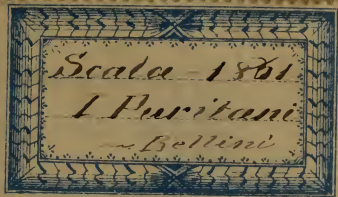 Scala - 1861
I Puritani
~ Bellini